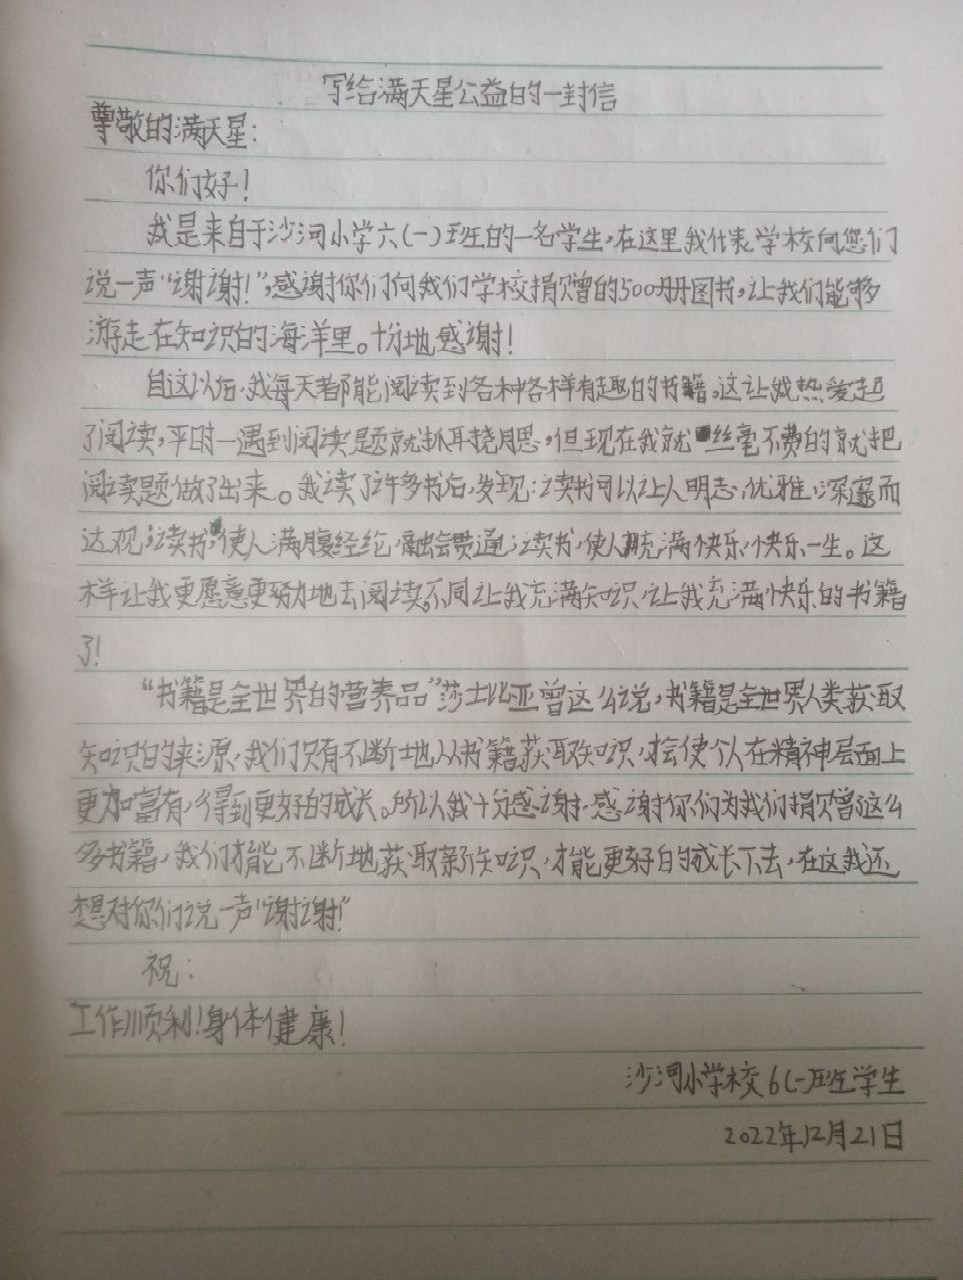 写给满天星公益的一封信
尊敬的满天星：
你们好！
我是来自于沙河小学六(一)班的一名学生，在这里我代表学校向您们
说一声“谢谢！”，感谢你们向我们学校捐赠的500册图书，让我们能够
游走在知识的海洋里。十分地感谢！
自这以后，我每天都能阅读到各种各样有趣的书籍，这让我热爱起
了阅读，平时一遇到阅读题就抓耳挠腮，但现在我就丝毫不费的就把
阅读题做了出来。我读了许多书后，发现：读书可以让人明志，优雅，深邃而
达观；读书，使人满腹经纶，融会贯通；读书，使人充满快乐，快乐一生。这
样让我更愿意更努力地去阅读不同让我充满知识，让我充满快乐的书籍
了！
“书籍是全世界的营养品”莎士比亚曾这么说，书籍是全世界人类获取
知识的来源，我们只有不断地从书籍获取知识，才会使个人在精神层面上
更加富有，得到更好的成长。所以我十分感谢，感谢你们为我们捐赠这么
多书籍，我们才能不断地获取新知识，才能更好的成长下去，在这我还
想对你们说一声“谢谢！”
祝：
工作顺利！身体健康！
沙河小学校6(一)班学生
2022年12月21日